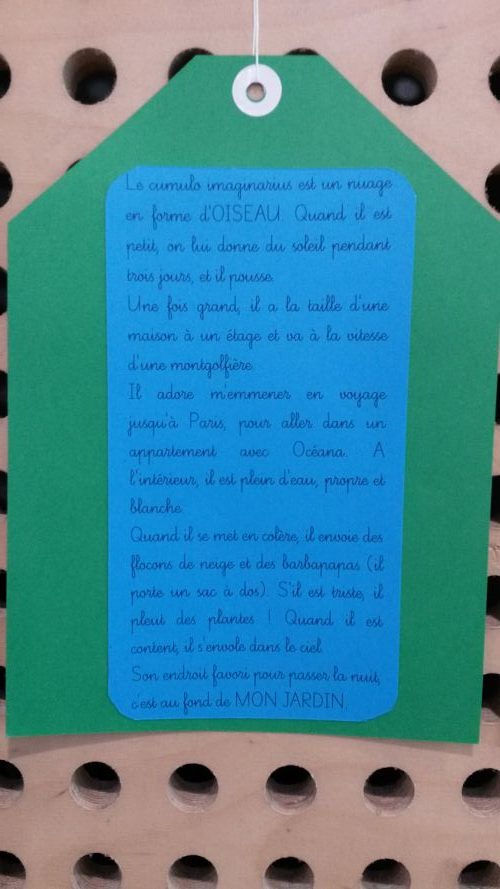 Le cumulo imaginarius est un nuage
en forme d'OISEAU. Quand il est
petit, on lui donne du soleil pendant
trois jours, et il pousse.
Une fois grand, il a la taille d'une
maison à un étage et va à la vitesse
d'une montgolfière.
Il adore m'emmener en voyage
jusqu'à Paris, pour aller dans un
appartement avec Océana. A
l'intérieur, il est plein d'eau, propre et
blanche.
Quand il se met en colère, il envoie des
flocons de neige et des barbapapas (il
porte un sac à dos). S'il est triste, il
pleut des plantes ! Quand il est
content, il s'envole dans le ciel.
Son endroit favori pour passer la nuit,
c'est au fond de MON JARDIN.